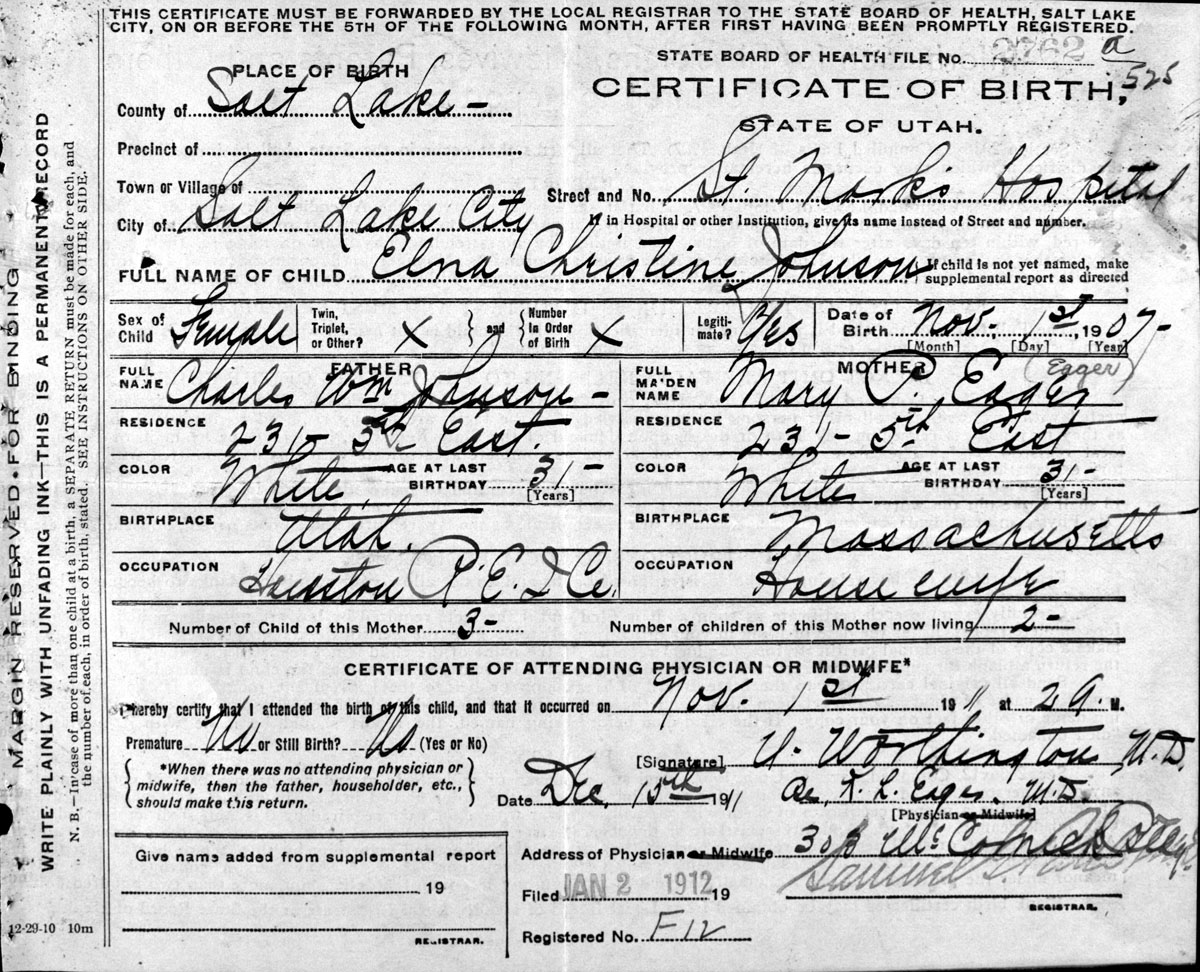 THIS CERTIFICATE MUST BE FORWARDED BY THE LOCAL REGISTRAR TO THE STATE BOARD OF HEALTH, SALT LAKE
CITY, ON OR BEFORE THE 5TH OF THE FOLLOWING MONTH, AFTER FIRST HAVING BEEN PROMPTLY REGISTERED.
STATE BOARD OF HEALTH FILE No. 2762 a
525
PLACE OF BIRTH
CERTIFICATE OF BIRTH,
County of Salt Lake -
STATE OF UTAH.
Precinct of
Town or Village of
Street and No. St. Mark's Hospital
City of Salt Lake City
If in Hospital or other Institution, give its name instead of Street and number.
FULL NAME OF CHILD Elna Christine Johnson
If child is not yet named, make
supplemental report as directed
Sex of Child Female
Twin, Triplet, or Other? X
and
Number In Order of Birth X
Legiti-mate? Yes
Date of Birth Nov. 1st, 1907-
[Month] [Day] [Year]
FATHER
FULL NAME Charles Wm Johnson -
RESIDENCE 231- 5th East.
COLOR White
AGE AT LAST BIRTHDAY 31-
[Years]
BIRTHPLACE Utah.
OCCUPATION Houston R. E. I Co.
MOTHER
(Eager)
FULL MAIDEN NAME Mary P. Eager
RESIDENCE 231- 5th East
COLOR White
AGE AT LAST BIRTHDAY 31-
[Years]
BIRTHPLACE Massachusetts
OCCUPATION House wife
Number of Child of this Mother 3-
Number of children of this Mother now living 2-
CERTIFICATE OF ATTENDING PHYSICIAN OR MIDWIFE*
I hereby certify that I attended the birth of this child, and that it occurred on Nov. 1st 191 at 2 a. M.
Premature No or Still Birth? No (Yes or No)
*When there was no attending physician or
midwife, then the father, householder, etc.,
should make this return.
[Signature] U. Worthington M.D.
Date Dec. 15th 1911 M.D.
[Physician or Midwife]
Address of Physician or Midwife 303 McCornick Bldg
Filed JAN 2 1912 19
Samuel
REGISTRAR.
Registered No. F12
Give name added from supplemental report
19
REGISTRAR.
12-29-10 10m
MARGIN RESERVED FOR BINDING
WRITE PLAINLY WITH UNFADING INK—THIS IS A PERMANENT RECORD
N. B.—In case of more than one child at a birth, a SEPARATE RETURN must be made for each, and
the number of each, in order of birth, stated. SEE INSTRUCTIONS ON OTHER SIDE.